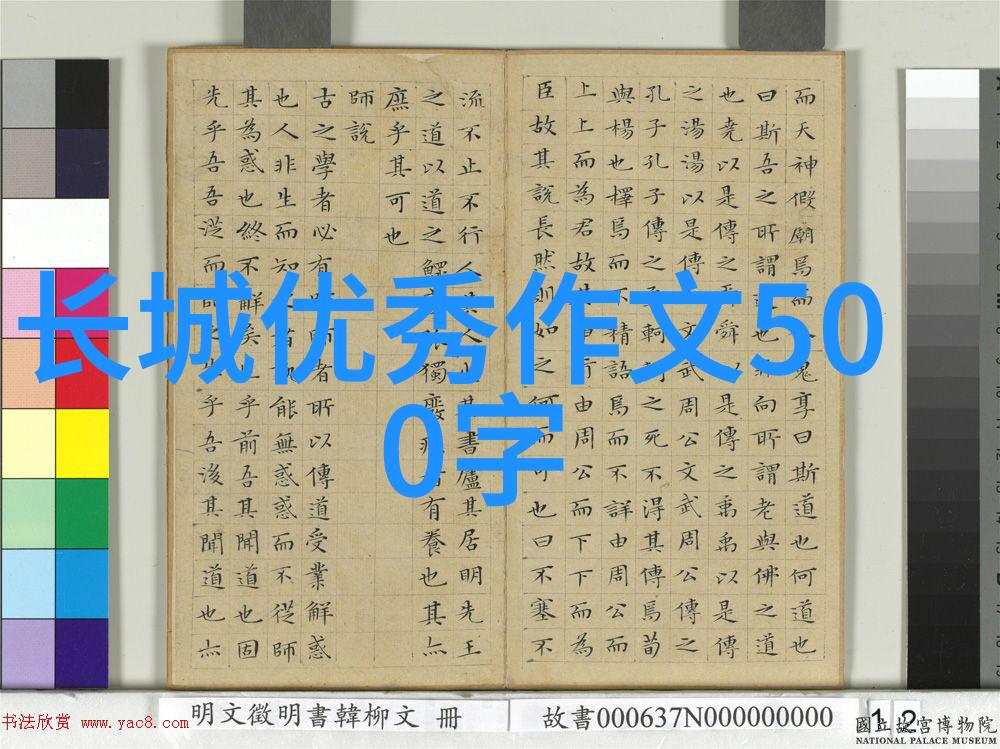 长城优秀作文50
0字
而天神假廟焉而人鬼享曰斯道也何道也
曰斯吾之所謂道也非向所謂老與佛之道
也堯以是傳之舜舜以是傳之禹禹以是傳
之湯湯以是傳之文武周公文武周公傳之
孔子孔子傳之孟軻軻之死不得其傳焉荀
與楊也擇焉而不精語焉而不詳由周公而
上上而為君故其事行由周公而下下而為
臣故其說長然則如之何而可也曰不塞不
流不止不行人其人火其書廬其居明先王
之道以道之鰥寡孤獨廢疾者有養也其亦
庶乎其可也
師說
古之學者必有師師者所以傳道受業解惑
也人非生而知之者孰能無惑惑而不從師
其為惑也終不解矣生乎前吾其聞道也固
先乎吾吾從而師之生乎吾後其聞道也亦
明文徵明書韓柳文 冊
故書000637N000000000
12
书法欣赏 www.yac8.com
國立故宮博物院
NATIONAL PALACE MUSEUM